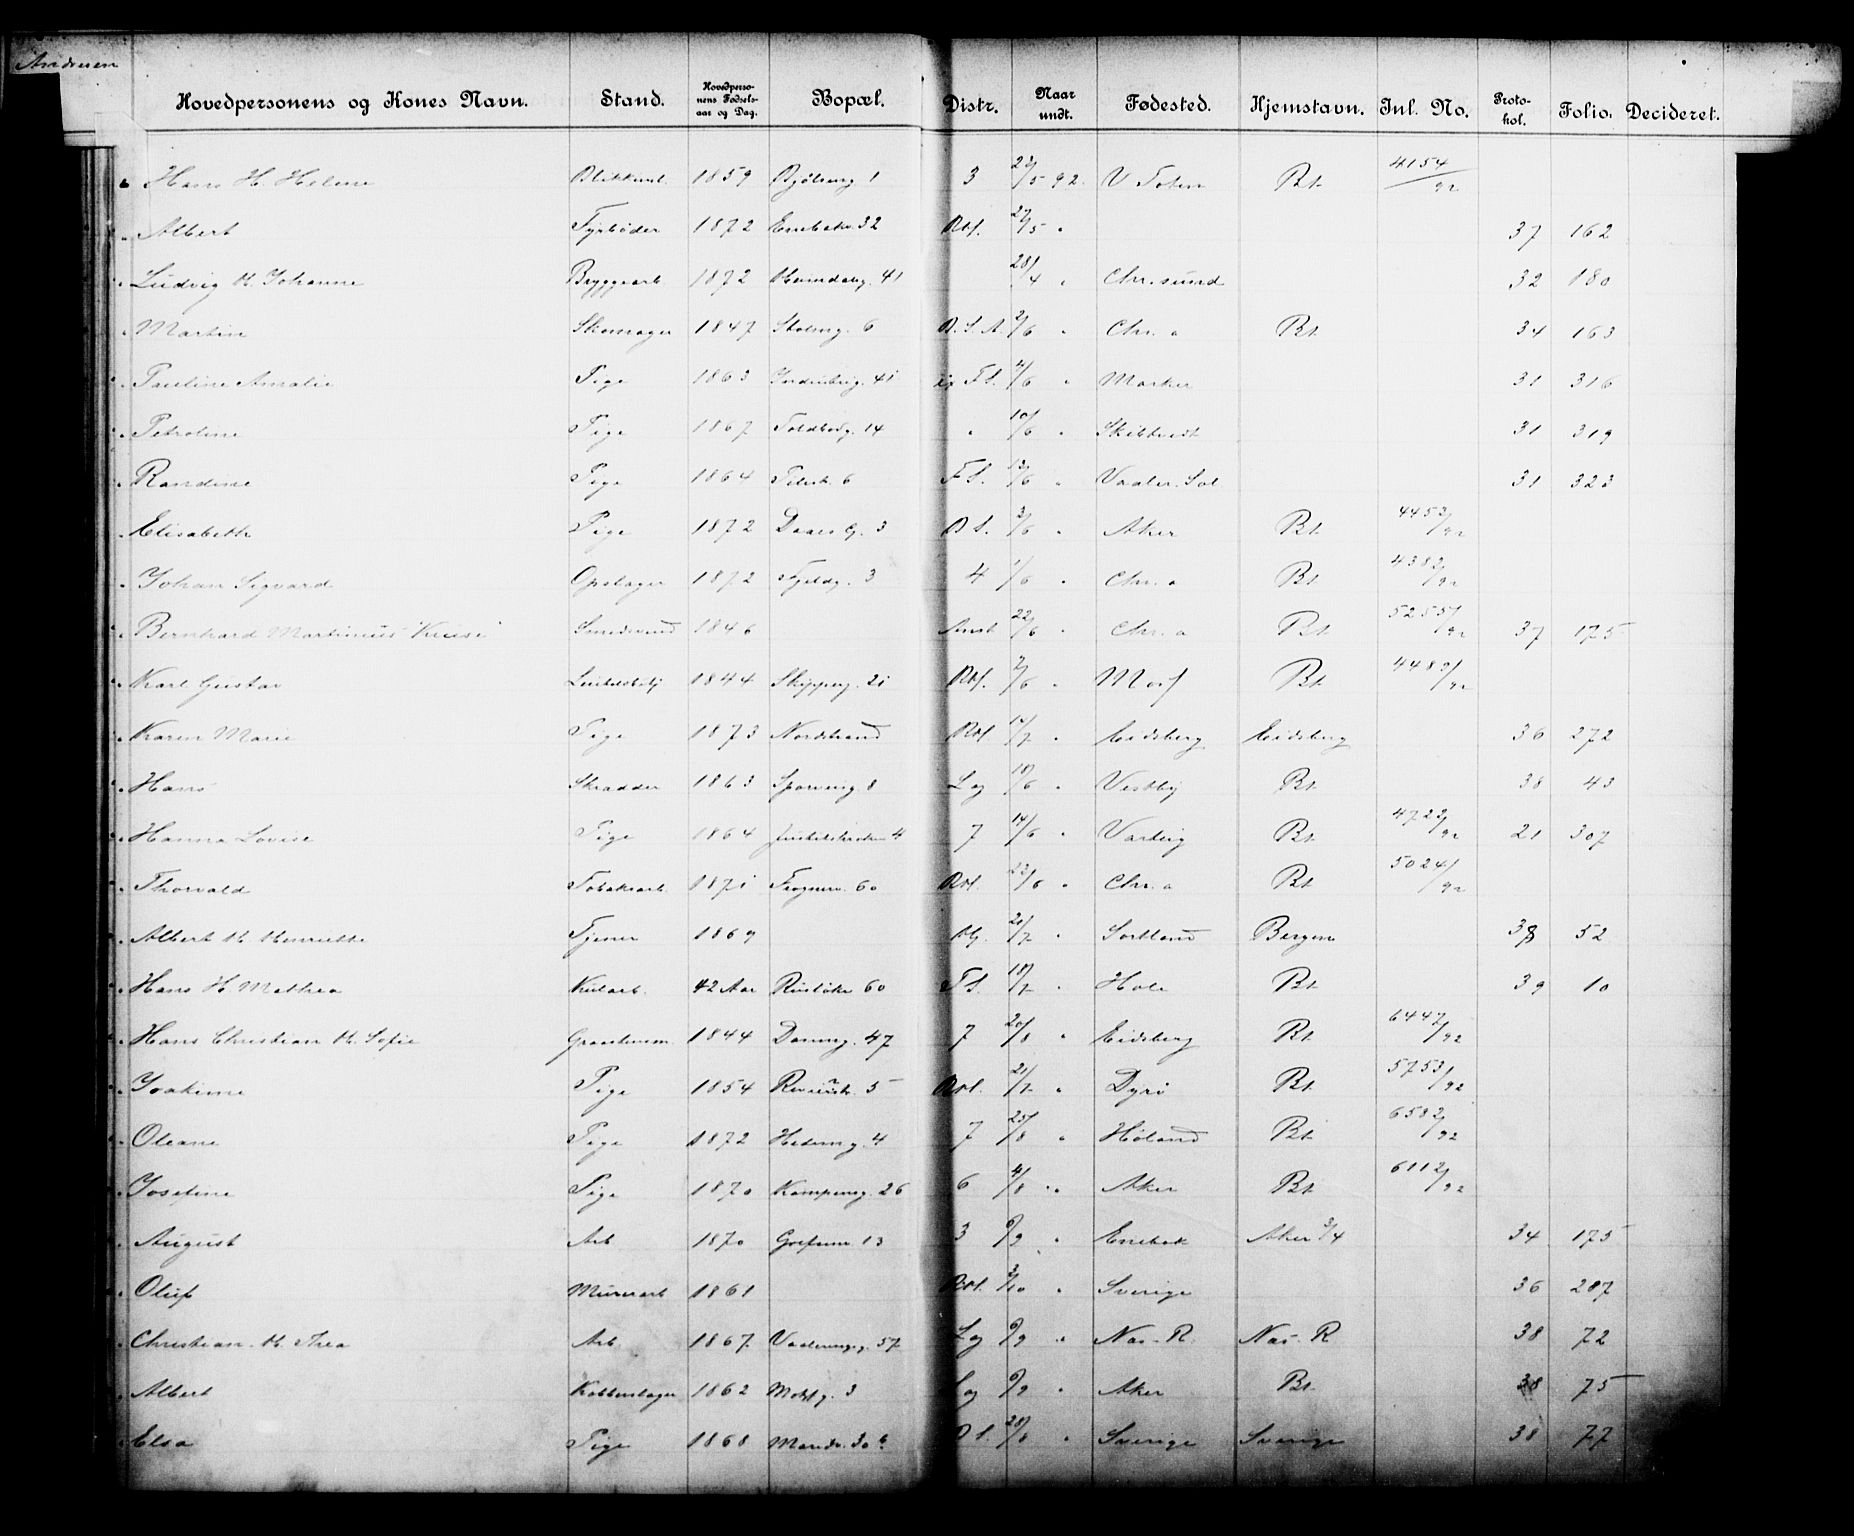 Andresen
Hovedpersonens og Kones Navn. Stand. Hovedperso-nens Fødsels-aar og Dag. Bopæl. Distr. Naar undt. Fødested. Hjemstavn. Inl. No. Proto-kol. Folio. Decideret.
Hans H. Helene 1859 3 2/5 92. V Toten Bt 4154/92
Albert Fyrbøder 1872 Enebakv. 32 Rkf. 27/5 " 37 162
Ludvig H. Johanne Bryggearb. 1872 41 28/4 " Chr.sund 32 180
Martin Skomager 1847 6 2/6 " Chr. a Bt 34 163
Pauline Amalie Pige 1863 41 F.S. 4/6 " Marker 31 316
Petroline Pige 1867 Toldbodg. 14 " 10/6 " Skibtvedt 31 319
Randine Pige 1864 Pilest. 6 F.S. 13/6 " Vaaler. Sol 31 323
Elisabeth Pige 1872 Daaes G. 3 3/6 " Aker Bt 4453/92
Johan Sigvard Opslager 1872 Fjeldg. 3 4 1/6 " Chr. a Bt 4382/92
Bernhard Martinius "Kruse" Smedsvend 1846 22/6 " Chr. a Bt 5255/92 37 175
Karl Gustav 1844 Skipperg. 21 Rkf. 2/6 " Moss Bt 92
Karen Marie Pige 1873 Nordstrand Rkf 14/7 " Eidsberg Eidsberg 36 272
Hans Skradder 1863 Spurveig. 8 Lg 18/6 " Vestby Bt 38 43
Hanna Lovise Pige 1864 4 7 14/6 " Varteig Bt 4722/92 21 307
Thorvald Tobaksarb. 1871 Frognerv. 60 Rkf. 22/6 " Chr. a Bt 5024/92
Albert H. Henriette Tjener 1869 21/7 " Sortland Bergen 38 52
Hans H. Mathea Kularb. 42 Aar Ruseløkv. 60 F.S. 18/7 " Hole Bt 39 10
Hans Christian H. Sofie 1844 47 7 20/8 " Eidsberg Bt 6447/92
Joakime Pige 1854 5 Rkf. 21/7 " Dyrø Bt 5753/92
Oleane Pige 1872 Hedemg. 4 7 25/8 " Høland Bt 6582/92
Josefine Pige 1870 Kampensg. 26 6 4/8 " Aker Bt 6112/92
August Arb 1870 Grefsenv. 13 3 6/9 " Enebak Aker 3/4 34 175
Oluf Murerarb 1861 Rkf. 3/10 " Sverige 36 287
Christian. H. Thea Arb. 1867. Vaalerengg. 57 Lg 6/9 " Næs- R. Næs- R 38 72
Albert Kobberslager 1862 3 Lg 6/9 " Aker Bt 38 75
Elsa Pige 1868 28/8 " Sverige Sverige 38 77